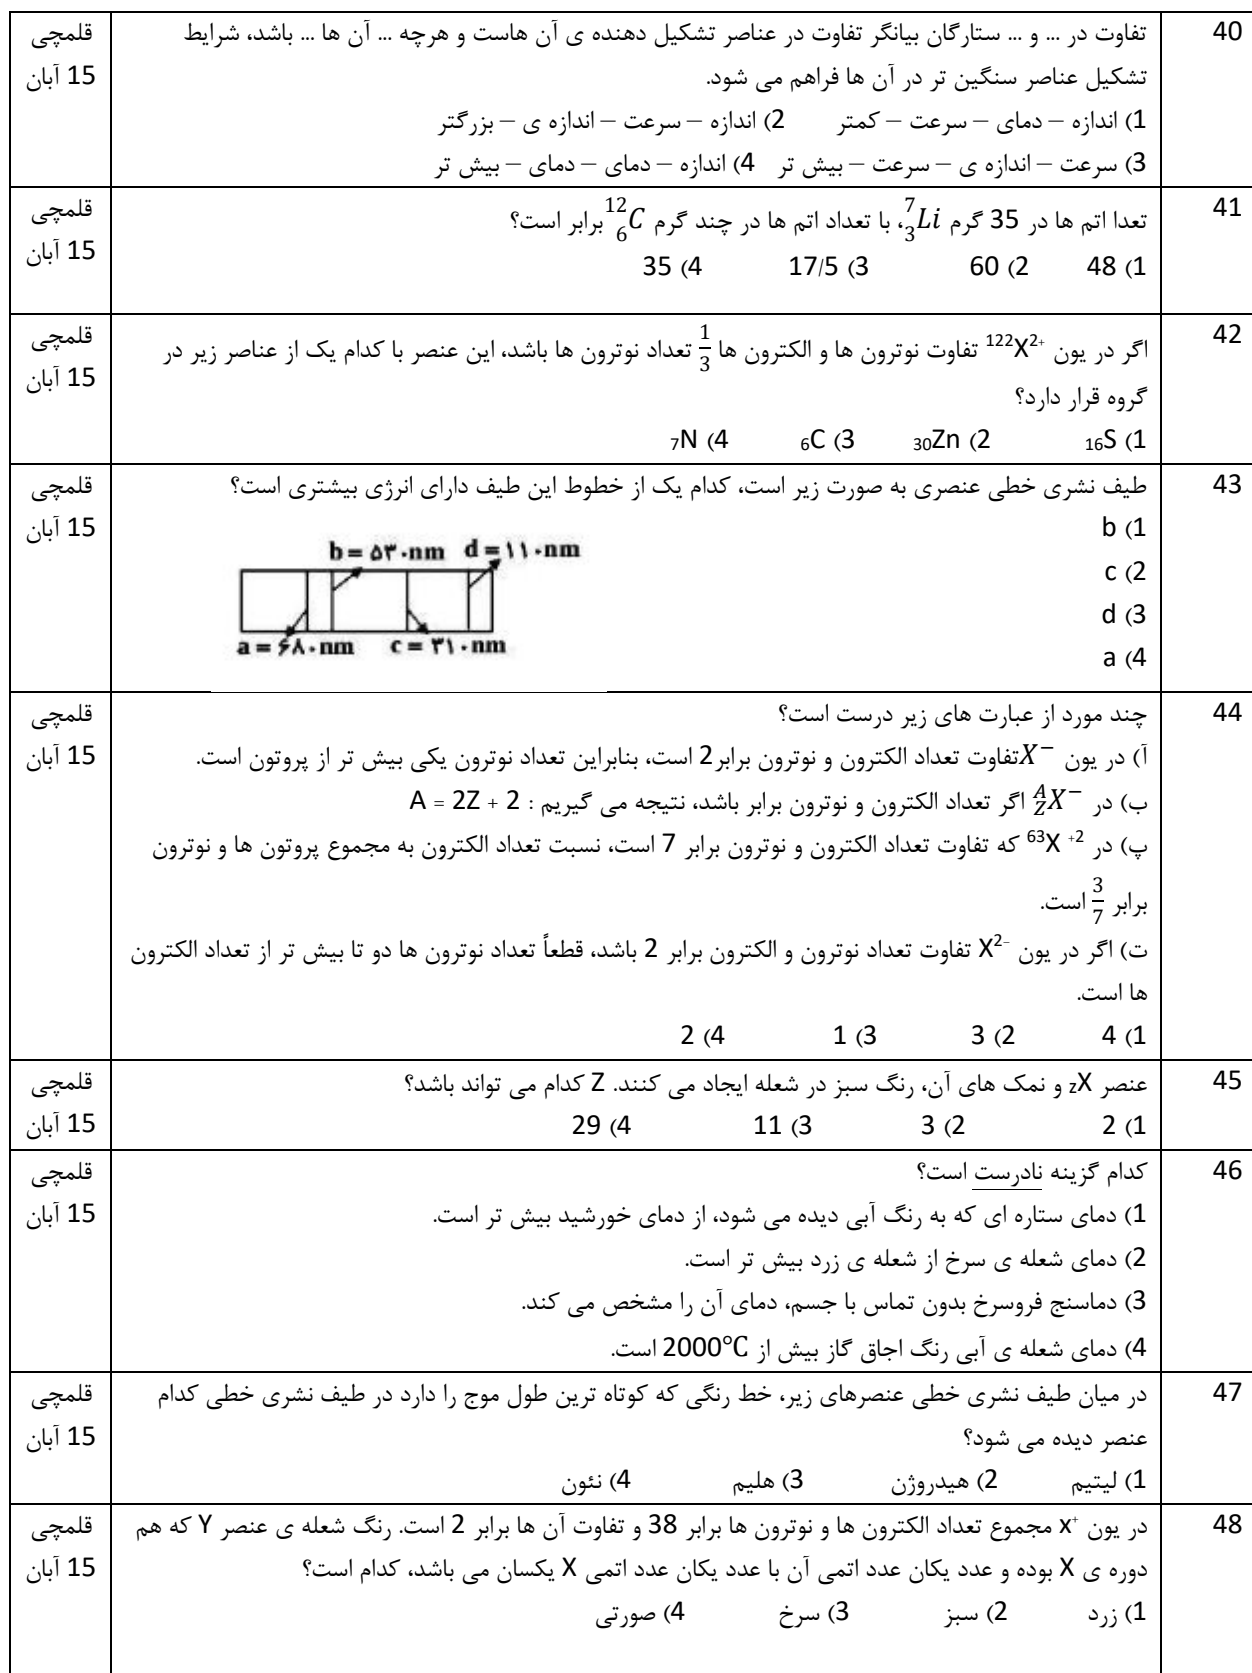 40
تفاوت در ... و ... ستارگان بیانگر تفاوت در عناصر تشکیل دهنده ی آن هاست و هرچه ... آن ها ... باشد، شرایط
تشکیل عناصر سنگین تر در آن ها فراهم می شود.
1) اندازه – دمای – سرعت – کمتر 2) اندازه – سرعت – اندازه ی – بزرگتر
3) سرعت – اندازه ی – سرعت – بیش تر 4) اندازه – دمای – دمای – بیش تر
قلمچی
15 آبان
41
تعدا اتم ها در 35 گرم ⁷₃Li، با تعداد اتم ها در چند گرم ¹²₆C برابر است؟
1) 48 2) 60 3) 17/5 4) 35
قلمچی
15 آبان
42
اگر در یون ¹²²X²⁺ تفاوت نوترون ها و الکترون ها 1/3 تعداد نوترون ها باشد، این عنصر با کدام یک از عناصر زیر در
گروه قرار دارد؟
1) ₁₆S 2) ₃₀Zn 3) ₆C 4) ₇N
قلمچی
15 آبان
43
طیف نشری خطی عنصری به صورت زیر است، کدام یک از خطوط این طیف دارای انرژی بیشتری است؟
1) b
2) c
3) d
4) a
b = ۵۳۰nm d = ۱۱۰nm
a = ۶۸۰nm c = ۳۱۰nm
قلمچی
15 آبان
44
چند مورد از عبارت های زیر درست است؟
آ) در یون X⁻ تفاوت تعداد الکترون و نوترون برابر2 است، بنابراین تعداد نوترون یکی بیش تر از پروتون است.
ب) در ᴬ_ZX⁻ اگر تعداد الکترون و نوترون برابر باشد، نتیجه می گیریم : A = 2Z + 2
پ) در ⁶³X ⁺² که تفاوت تعداد الکترون و نوترون برابر 7 است، نسبت تعداد الکترون به مجموع پروتون ها و نوترون
برابر 3/7 است.
ت) اگر در یون X²⁻ تفاوت تعداد نوترون و الکترون برابر 2 باشد، قطعاً تعداد نوترون ها دو تا بیش تر از تعداد الکترون
ها است.
1) 4 2) 3 3) 1 4) 2
قلمچی
15 آبان
45
عنصر zX و نمک های آن، رنگ سبز در شعله ایجاد می کنند. Z کدام می تواند باشد؟
1) 2 2) 3 3) 11 4) 29
قلمچی
15 آبان
46
کدام گزینه نادرست است؟
1) دمای ستاره ای که به رنگ آبی دیده می شود، از دمای خورشید بیش تر است.
2) دمای شعله ی سرخ از شعله ی زرد بیش تر است.
3) دماسنج فروسرخ بدون تماس با جسم، دمای آن را مشخص می کند.
4) دمای شعله ی آبی رنگ اجاق گاز بیش از 2000°C است.
قلمچی
15 آبان
47
در میان طیف نشری خطی عنصرهای زیر، خط رنگی که کوتاه ترین طول موج را دارد در طیف نشری خطی کدام
عنصر دیده می شود؟
1) لیتیم 2) هیدروژن 3) هلیم 4) نئون
قلمچی
15 آبان
48
در یون x⁺ مجموع تعداد الکترون ها و نوترون ها برابر 38 و تفاوت آن ها برابر 2 است. رنگ شعله ی عنصر Y که هم
دوره ی X بوده و عدد یکان عدد اتمی آن با عدد یکان عدد اتمی X یکسان می باشد، کدام است؟
1) زرد 2) سبز 3) سرخ 4) صورتی
قلمچی
15 آبان